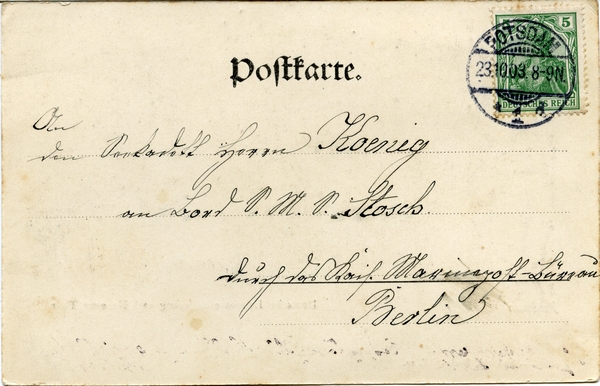 5
POTSDAM
23.10.03. 8-9N.
1
DEUTSCHES REICH
Postkarte.
An
den Seekadett Herrn Koenig
an Bord S. M. S. Stosch.
durch das Kais. Marinepost-Bureau
Berlin